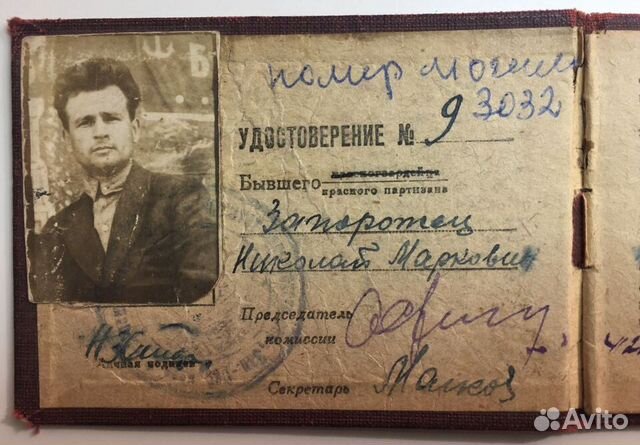 номер могилы
3032
УДОСТОВЕРЕНИЕ № 9
Бывшего красногвардейца
красного партизана
Запорожец
Николай Маркович
Председатель
комиссии
Личная подпись
Секретарь
Avito